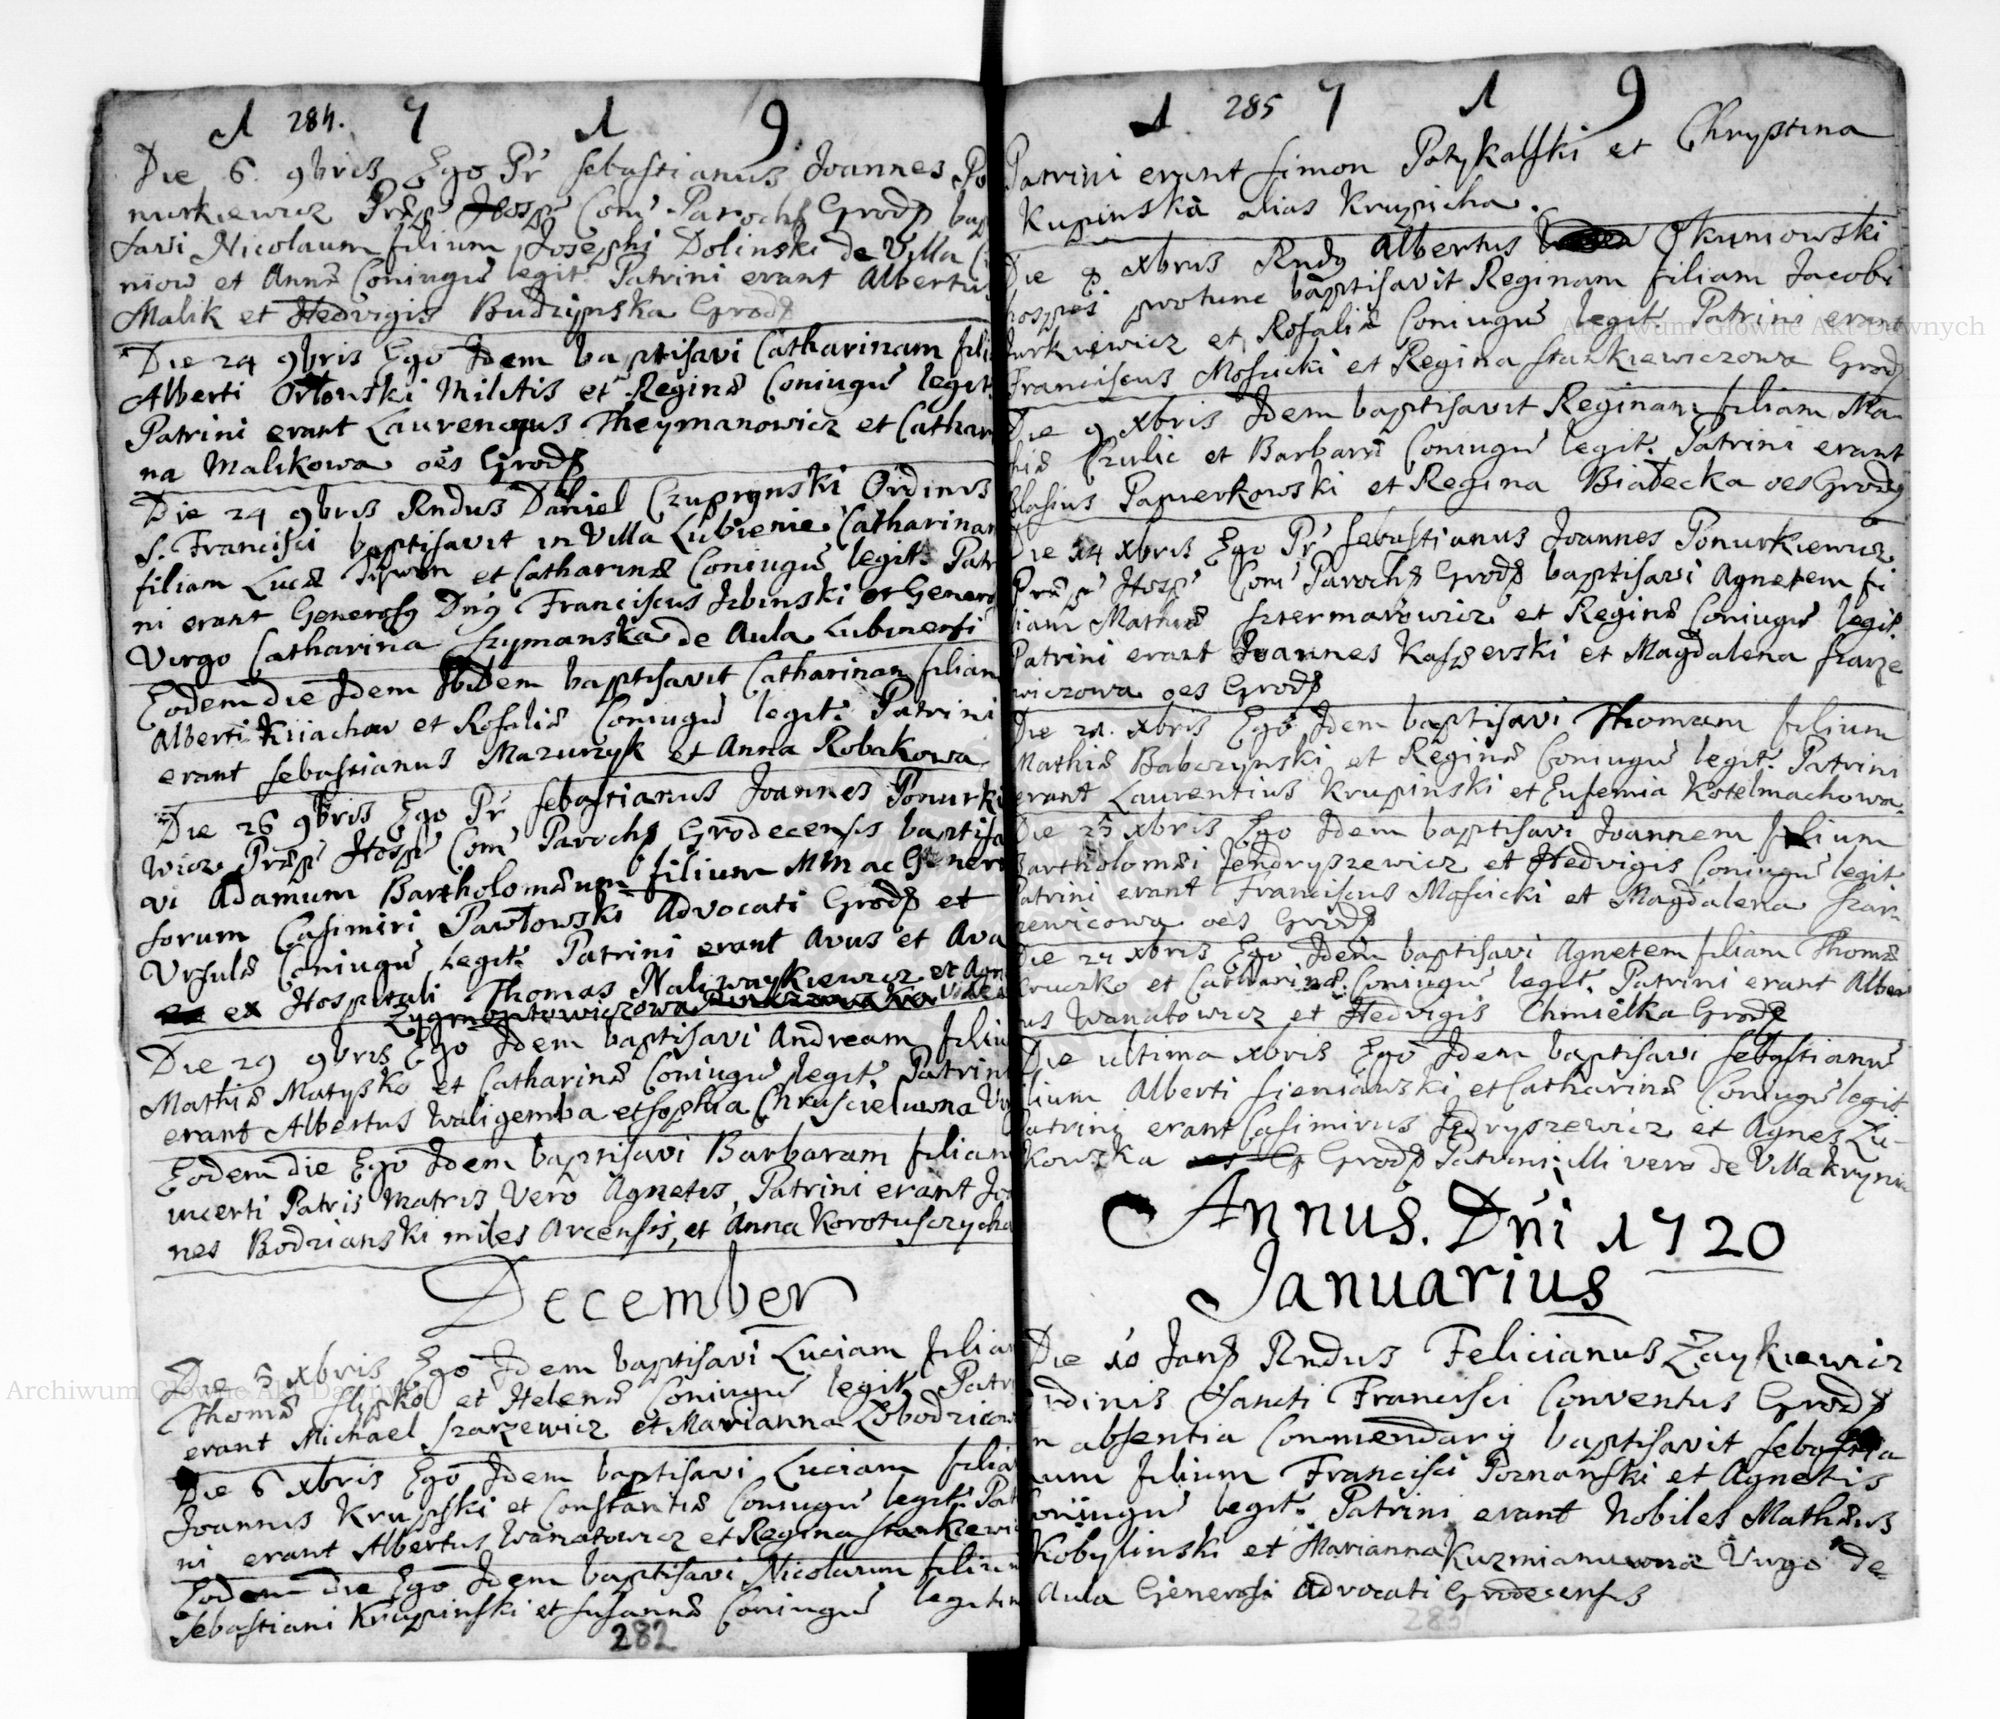 1 284. 7 1 9
Die 6. 9bris Ego Pr Sebastianus Joannes Po
nurkiewicz Præp Hosp Com Paroch Grod bap
tisavi Nicolaum filium Josephi Dolinski de Villa
niow et Annæ Coniugu legit. Patrini erant Albertus
Malik et Hedvigis Budzynska Grod
Die 24 9bris Ego Idem baptisavi Catharinam fili
Alberti Orłowski Militis et Reginæ Coniugu legit.
Patrini erant Laurentius Theymanowicz et Cathari
na Malikowa oēs Grod
Die 24 9bris Rndus Daniel Czuprynski Ordinis
S. Francisci baptisavit in Villa Lubienie Catharinam
filiam Lucæ et Catharinæ Coniugu legit. Patri
ni erant Generosq Dnq Franciscus Izbinski et Generos
Virgo Catharina Szymanska de Aula Lubinensi
Eodem die Idem Ibidem baptisavit Catharinam filiam
Alberti Kiiachow et Rosaliæ Coniugu legit. Patrini
erant Sebastianus Mazurzyk et Anna Robakowa
Die 26 9bris Ego Pr Sebastianus Joannes Ponurkie
wicz Præp Hosp Com Paroch Grodecensis baptisa
vi Adamum Bartholomæum filium MM ac Genero
sorum Casimiri Pawłowski Advocati Grod et
Ursulæ Coniugu Legit. Patrini erant Avus et Ava
ex Hospitali Thomas Naliwaykiewicz et Agn
Zygmontowiczowa Vidua
Die 29 9bris Ego Idem baptisavi Andream filiu
Mathiæ Matysko et Catharinæ Coniugu legit. Patrini
erant Albertus Waligemba et Sophia Chrusceluwna Vir
Eodem die Ego Idem baptisavi Barbaram filiam
incerti Patris Matris Vero Agnetis, Patrini erant Joa
nes Bodzianski miles Arcensis, et Anna Korotusczycha
December
Die 5 xbris Ego Idem baptisavi Luciam filiam
Thomæ Slysko et Helenæ Coniugu legit. Patri
erant Michael Szarzewicz et Marianna Łobodzicow
Die 6 xbris Ego Idem baptisavi Luciam filia
Joannis Krupski et Constantiæ Coniugu legit. Pat
ni erant Albertus Wanatowicz et Regina Stankiewi
Eodem die Ego Idem baptisavi Nicolaum filium
Sebastiani Krupinski et Susannæ Coniugu legitim
282
1 285 7 1 9
Patrini erant Simon Patykalski et Chrystina
Kupinska alias Krupicha.
Die 8 xbris Rndq Albertus Skuniowski
hospes protunc baptisavit Reginam filiam Jacobi
Jurkiewicz et Rosaliæ Coniugu legit. Patrini erant
Franciscus Moscicki et Regina Stankiewiczowa Grod
Die 9 xbris Idem baptisavit Reginam filiam Ma
thiæ Czulic et Barbaræ Coniugu legit. Patrini erant
Blasius Papierkowski et Regina Białecka oes Grod
Die 14 xbris Ego Pr Sebastianus Joannes Ponurkiewicz
Præp Hosp Com Paroch Grod baptisavi Agnetem fi
liam Mathiæ Sztermatowicz et Reginæ Coniugu legit.
Patrini erant Joannes Kasperski et Magdalena Szarze
wiczowa oes Grod
Die 21. xbris Ego Idem baptisavi Thomam filium
Mathiæ Babczynski et Reginæ Coniugu legit. Patrini
erant Laurentius Krupinski et Eufemia Kotelmachowa.
Die 25 xbris Ego Idem baptisavi Joannem filium
Bartholomæi Jendryszewicz et Hedvigis Coniugu legit
Patrini erant Franciscus Moscicki et Magdalena Szar
zewicowa oes Grod
Die 27 xbris Ego Idem baptisavi Agnetem filiam Thomæ
Kruczko et Catharinæ Coniugu legit. Patrini erant Alber
us Wanatowicz et Hedvigis Chmielka Grod
Die ultima xbris Ego Idem baptisavi Sebastianu
filium Alberti Sieniawski et Catharinæ Coniugu legit.
Patrini erant Casimirus Jedryszewicz et Agnes Zu-
kowska Grod Patrini illi vero de Villa Krynic
Annus. Dni 1720
Januarius
Die 10 Jan Rndus Felicianus Zaykiewicz
Ordinis Sancti Francisci Conventus Grod
in absentia Commendarij baptisavit Sebastia
num filium Francisci Poznanski et Agnetis
Coniugu legit. Patrini erant Nobiles Mathæus
Kobylinski et Marianna Kuzmianuwna Virgo de
Aula Generosi Advocati Grodecensis
283
Archiwum Główne Akt Dawnych
Archiwum Główne Akt Dawnych